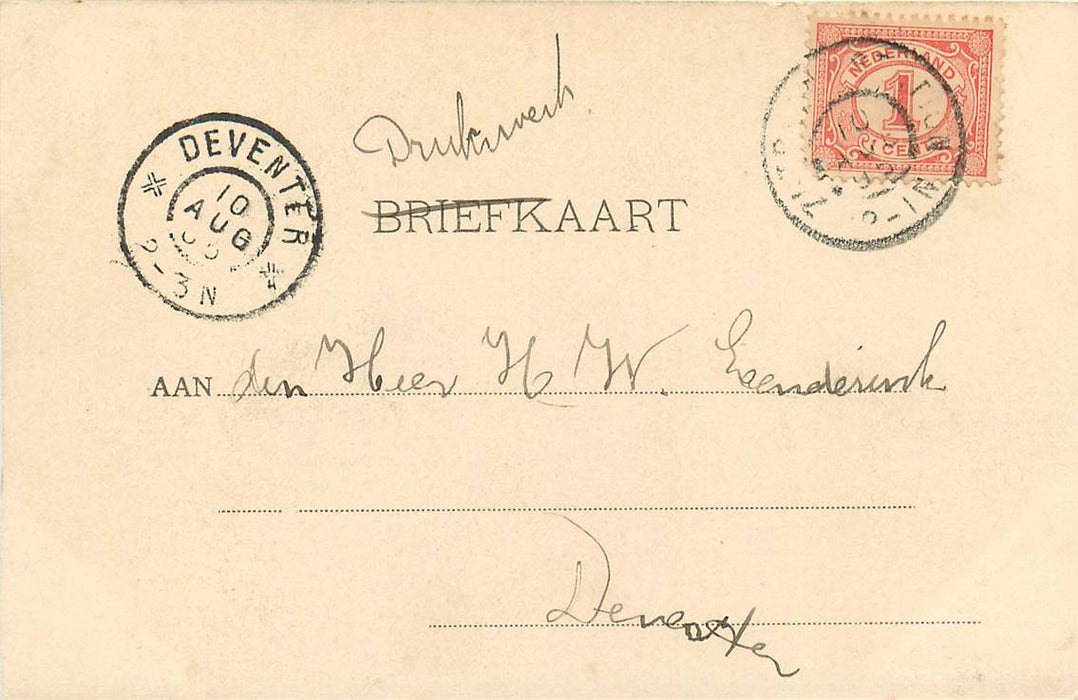 NEDERLAND
1
CENT
Drukwerk
DEVENTER
10
AUG
2-3N
BRIEFKAART
AAN den Heer H W. Leenderink
Deventer